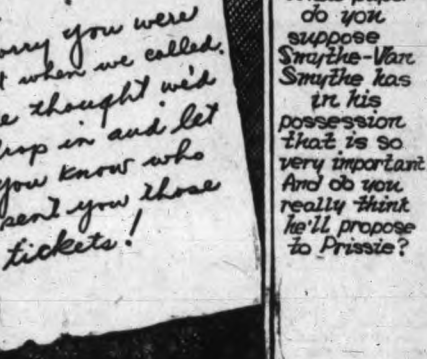 orry you were
t when we called.
e thought we'd
rop in and let
you know who
sent you those
tickets!
do you
suppose
Smythe-Van
Smythe has
in his
possession
that is so
very important
And do you
really think
he'll propose
to Prissie?